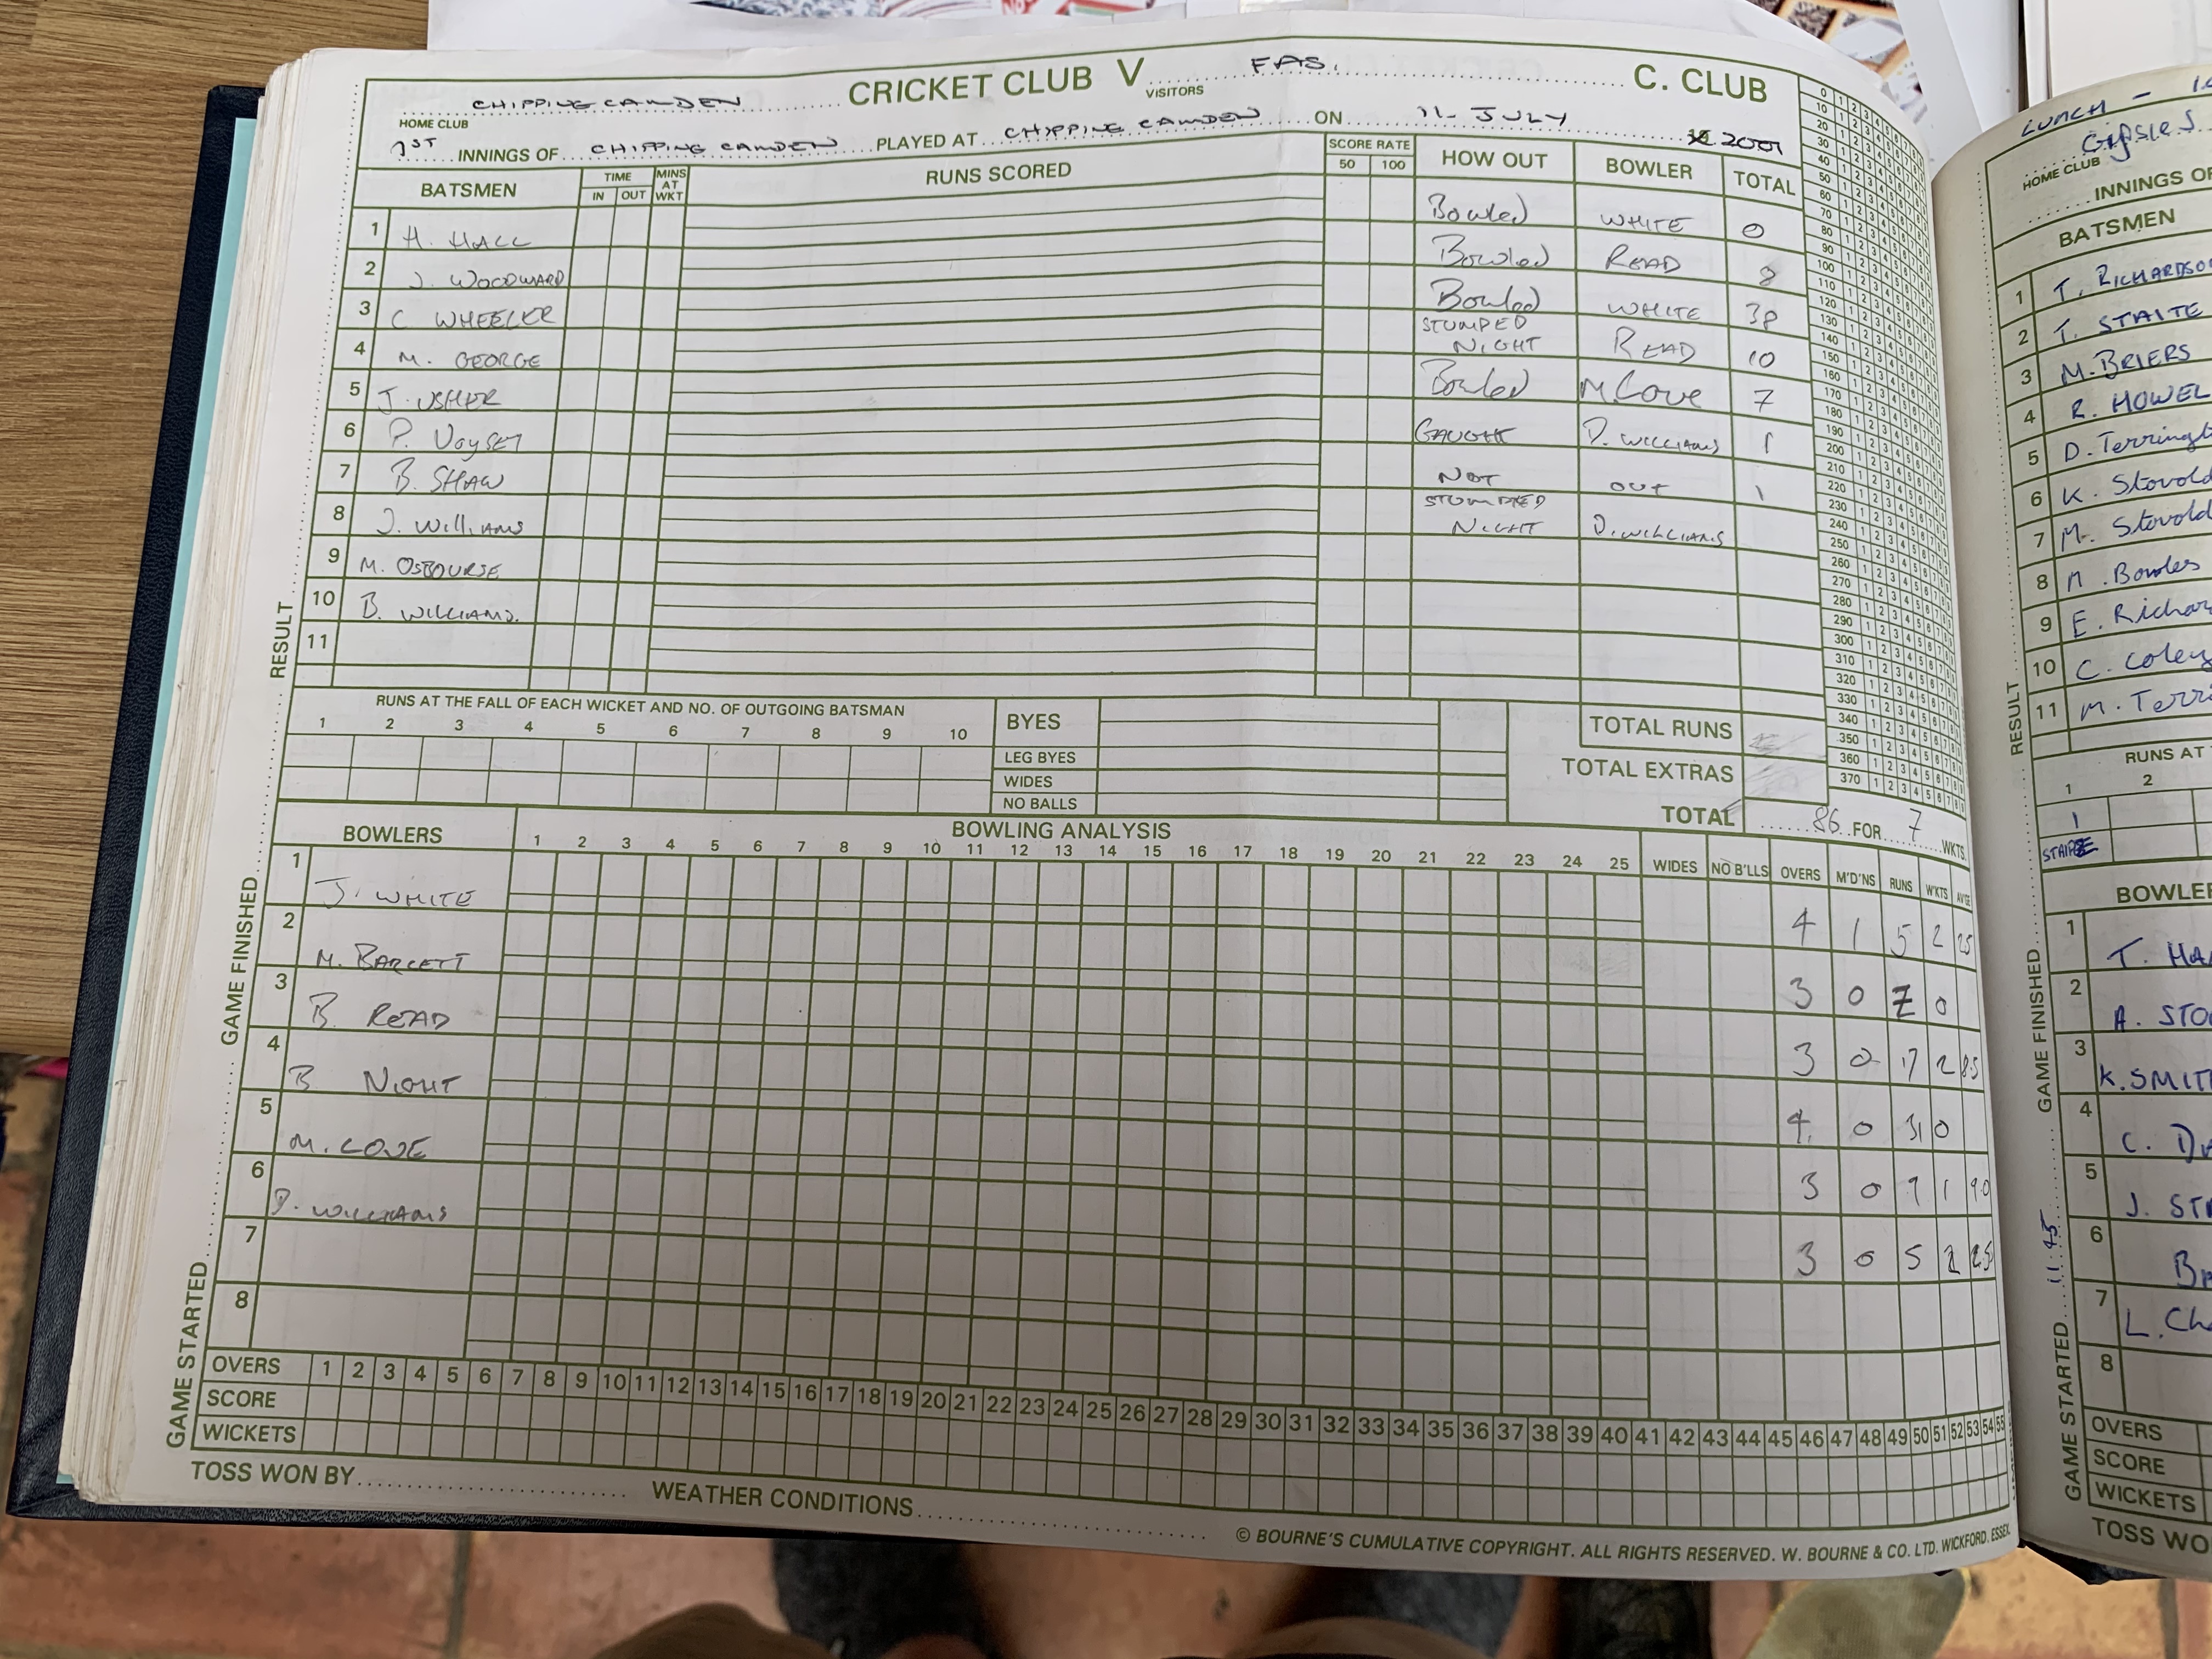 CHIPPING CAMDEN CRICKET CLUB V FAS. C. CLUB
HOME CLUB VISITORS
1ST INNINGS OF CHIPPING CAMDEN PLAYED AT CHIPPING CAMDEN ON 11 JULY 2001
BATSMEN TIME MINS AT WKT RUNS SCORED SCORE RATE HOW OUT BOWLER TOTAL
IN OUT 50 100
1 H. HALL Bowled WHITE 0
2 J. WOODWARD Bowled READ 8
3 C WHEELER Bowled WHITE 38
4 M. GEORGE STUMPED NIGHT READ 10
5 J. USHER Bowled M. Love 7
6 P. Voysey CAUGHT D. WILLIAMS 1
7 B. SHAW NOT OUT 1
8 J. Williams STUMPED NIGHT D. WILLIAMS
9 M. OSBOURSE
10 B. WILLIAMS.
11
RESULT
RUNS AT THE FALL OF EACH WICKET AND NO. OF OUTGOING BATSMAN
1 2 3 4 5 6 7 8 9 10
BYES
LEG BYES
WIDES
NO BALLS
TOTAL RUNS
TOTAL EXTRAS
TOTAL 86 FOR 7 WKTS.
BOWLERS BOWLING ANALYSIS
1 2 3 4 5 6 7 8 9 10 11 12 13 14 15 16 17 18 19 20 21 22 23 24 25 WIDES NO B'LLS OVERS M'D'NS RUNS W'KTS AV'GE
1 J. WHITE 4 1 5 2 2.5
2 M. BARCETT 3 0 7 0
3 B. READ 3 0 17 2 8.5
4 B NIGHT 4 0 31 0
5 M. LOVE 3 0 9 1 9.0
6 D. WILLIAMS 3 0 5 2 2.5
7
8
GAME FINISHED
GAME STARTED
OVERS 1 2 3 4 5 6 7 8 9 10 11 12 13 14 15 16 17 18 19 20 21 22 23 24 25 26 27 28 29 30 31 32 33 34 35 36 37 38 39 40 41 42 43 44 45 46 47 48 49 50 51 52 53 54 55
SCORE
WICKETS
TOSS WON BY WEATHER CONDITIONS
© BOURNE'S CUMULATIVE COPYRIGHT. ALL RIGHTS RESERVED. W. BOURNE & CO. LTD. WICKFORD. ESSEX
LUNCH -
Gipsies
HOME CLUB
INNINGS OF
BATSMEN
1 T. RICHARDSO
2 T. STAITE
3 M. BRIERS
4 R. HOWEL
5 D. Terringt
6 K. Stovold
7 M. Stovold
8 M. Bowles
9 E. Richar
10 C. Coley
11 M. Terri
RESULT
RUNS AT
1 2
1
BOWLER
1 T. HA
2 A. STO
3 K. SMIT
4 C. Du
5 J. ST
6 Br
7 L. Ch
8
GAME FINISHED
GAME STARTED 11.45
OVERS 1 2
SCORE
WICKETS
TOSS WO